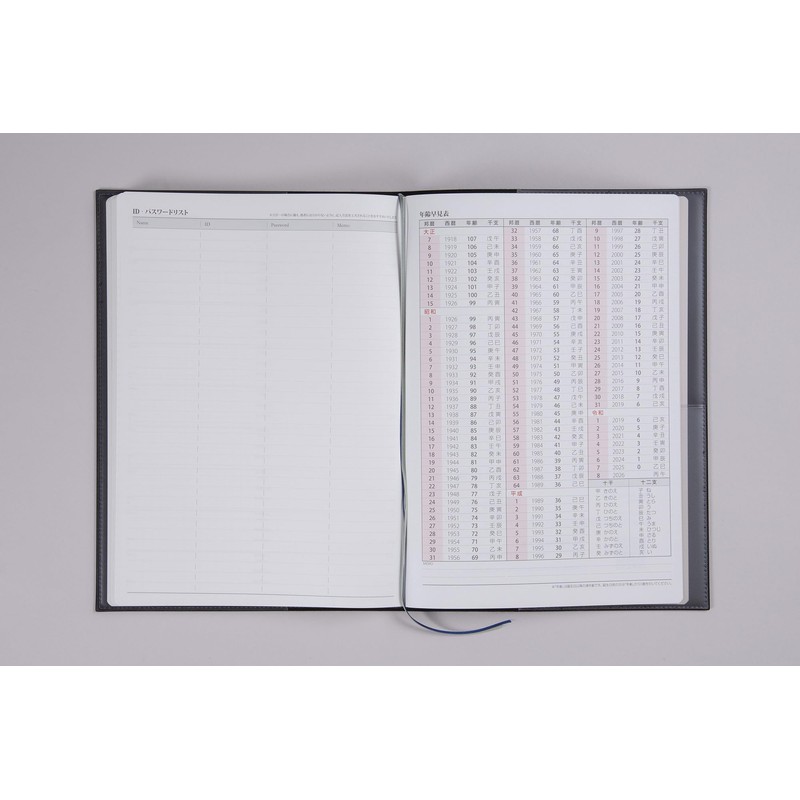 ID・パスワードリスト
Name ID Password Memo
年齢早見表
邦暦 西暦 年齢 干支
大正
7 1918 107 戊午
8 1919 106 己未
9 1920 105 庚申
10 1921 104 辛酉
11 1922 103 壬戌
12 1923 102 癸亥
13 1924 101 甲子
14 1925 100 乙丑
15 1926 99 丙寅
昭和
1 1926 99 丙寅
2 1927 98 丁卯
3 1928 97 戊辰
4 1929 96 己巳
5 1930 95 庚午
6 1931 94 辛未
7 1932 93 壬申
8 1933 92 癸酉
9 1934 91 甲戌
10 1935 90 乙亥
11 1936 89 丙子
12 1937 88 丁丑
13 1938 87 戊寅
14 1939 86 己卯
15 1940 85 庚辰
16 1941 84 辛巳
17 1942 83 壬午
18 1943 82 癸未
19 1944 81 甲申
20 1945 80 乙酉
21 1946 79 丙戌
22 1947 78 丁亥
23 1948 77 戊子
24 1949 76 己丑
25 1950 75 庚寅
26 1951 74 辛卯
27 1952 73 壬辰
28 1953 72 癸巳
29 1954 71 甲午
30 1955 70 乙未
31 1956 69 丙申
邦暦 西暦 年齢 干支
32 1957 68 丁酉
33 1958 67 戊戌
34 1959 66 己亥
35 1960 65 庚子
36 1961 64 辛丑
37 1962 63 壬寅
38 1963 62 癸卯
39 1964 61 甲辰
40 1965 60 乙巳
41 1966 59 丙午
42 1967 58 丁未
43 1968 57 戊申
44 1969 56 己酉
45 1970 55 庚戌
46 1971 54 辛亥
47 1972 53 壬子
48 1973 52 癸丑
49 1974 51 甲寅
50 1975 50 乙卯
51 1976 49 丙辰
52 1977 48 丁巳
53 1978 47 戊午
54 1979 46 己未
55 1980 45 庚申
56 1981 44 辛酉
57 1982 43 壬戌
58 1983 42 癸亥
59 1984 41 甲子
60 1985 40 乙丑
61 1986 39 丙寅
62 1987 38 丁卯
63 1988 37 戊辰
64 1989 36 己巳
平成
1 1989 36 己巳
2 1990 35 庚午
3 1991 34 辛未
4 1992 33 壬申
5 1993 32 癸酉
6 1994 31 甲戌
7 1995 30 乙亥
8 1996 29 丙子
邦暦 西暦 年齢 干支
9 1997 28 丁丑
10 1998 27 戊寅
11 1999 26 己卯
12 2000 25 庚辰
13 2001 24 辛巳
14 2002 23 壬午
15 2003 22 癸未
16 2004 21 甲申
17 2005 20 乙酉
18 2006 19 丙戌
19 2007 18 丁亥
20 2008 17 戊子
21 2009 16 己丑
22 2010 15 庚寅
23 2011 14 辛卯
24 2012 13 壬辰
25 2013 12 癸巳
26 2014 11 甲午
27 2015 10 乙未
28 2016 9 丙申
29 2017 8 丁酉
30 2018 7 戊戌
31 2019 6 己亥
令和
1 2019 6 己亥
2 2020 5 庚子
3 2021 4 辛丑
4 2022 3 壬寅
5 2023 2 癸卯
6 2024 1 甲辰
7 2025 0 乙巳
8 2026 丙午
十干 十二支
甲 きのえ 子 ね
乙 きのと 丑 うし
丙 ひのえ 寅 とら
丁 ひのと 卯 う
戊 つちのえ 辰 たつ
己 つちのと 巳 み
庚 かのえ 午 うま
辛 かのと 未 ひつじ
壬 みずのえ 申 さる
癸 みずのと 酉 とり
戌 いぬ
亥 い